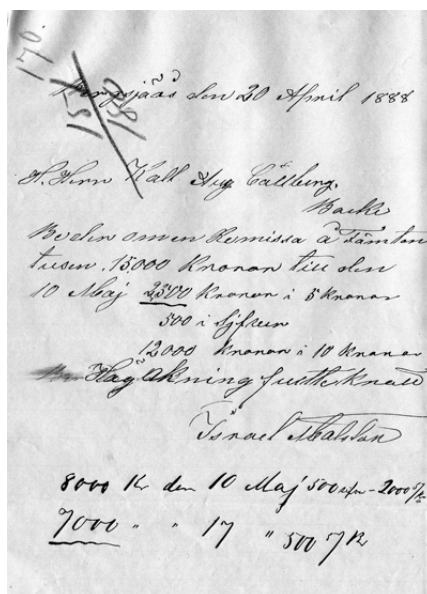 170.
15/4 80
Bergsjöås den 20 April 1888
H. Herr Kall Aug Cällberg.
Backe
Beder om en Remissa å Fämton
tusen. 15000 Kronor till den
10 Maj 2500 Kronor i 5 kronor
500 i Sjfrun
12000 Kronor i 10 Kronor
Hög Akning
Israel
8000 Kr den 10 Maj 500 - 2000 5/Kr
7000 " " 17 " 500 5/Kr